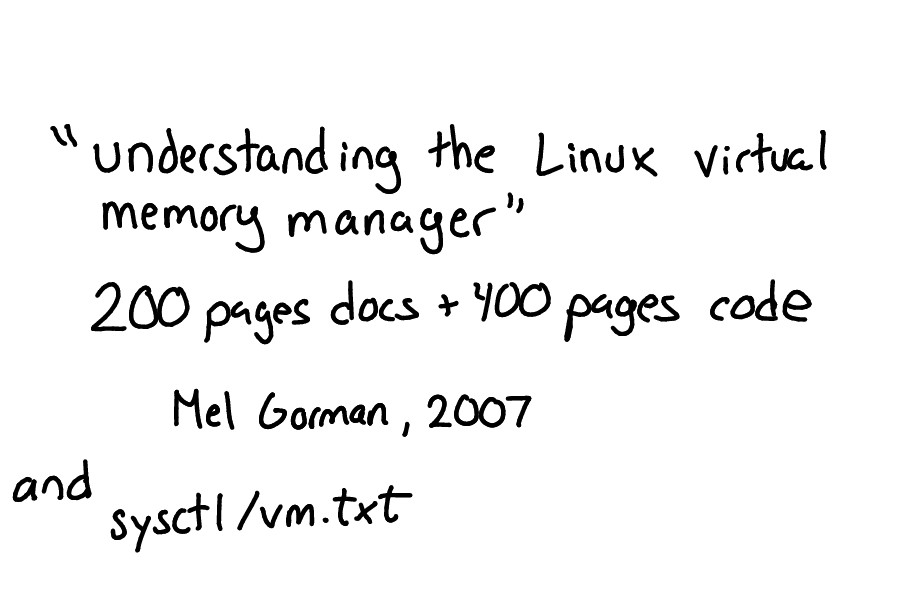 "understanding the Linux virtual
memory manager"
200 pages docs + 400 pages code
Mel Gorman, 2007
and
sysctl/vm.txt